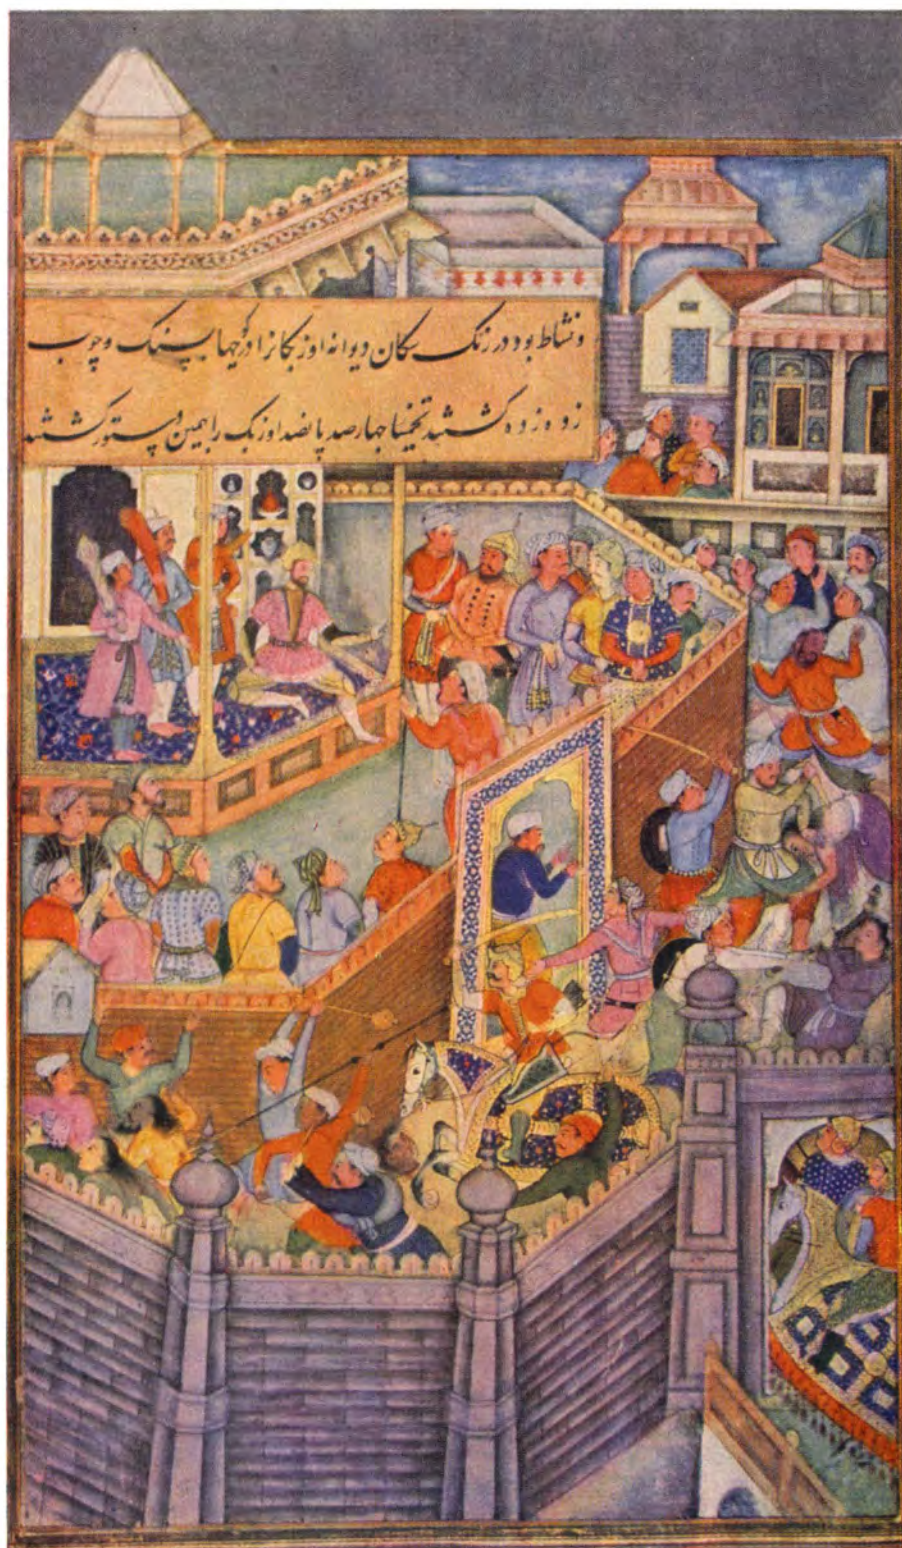 و نشاط بود در رنک سکان دیوانه اوزبکانرا در کوچها بسنک و چوب
زده زده کشتند تخمینا چهارصد پانصد اوزبک را بهمین دستور کشتند